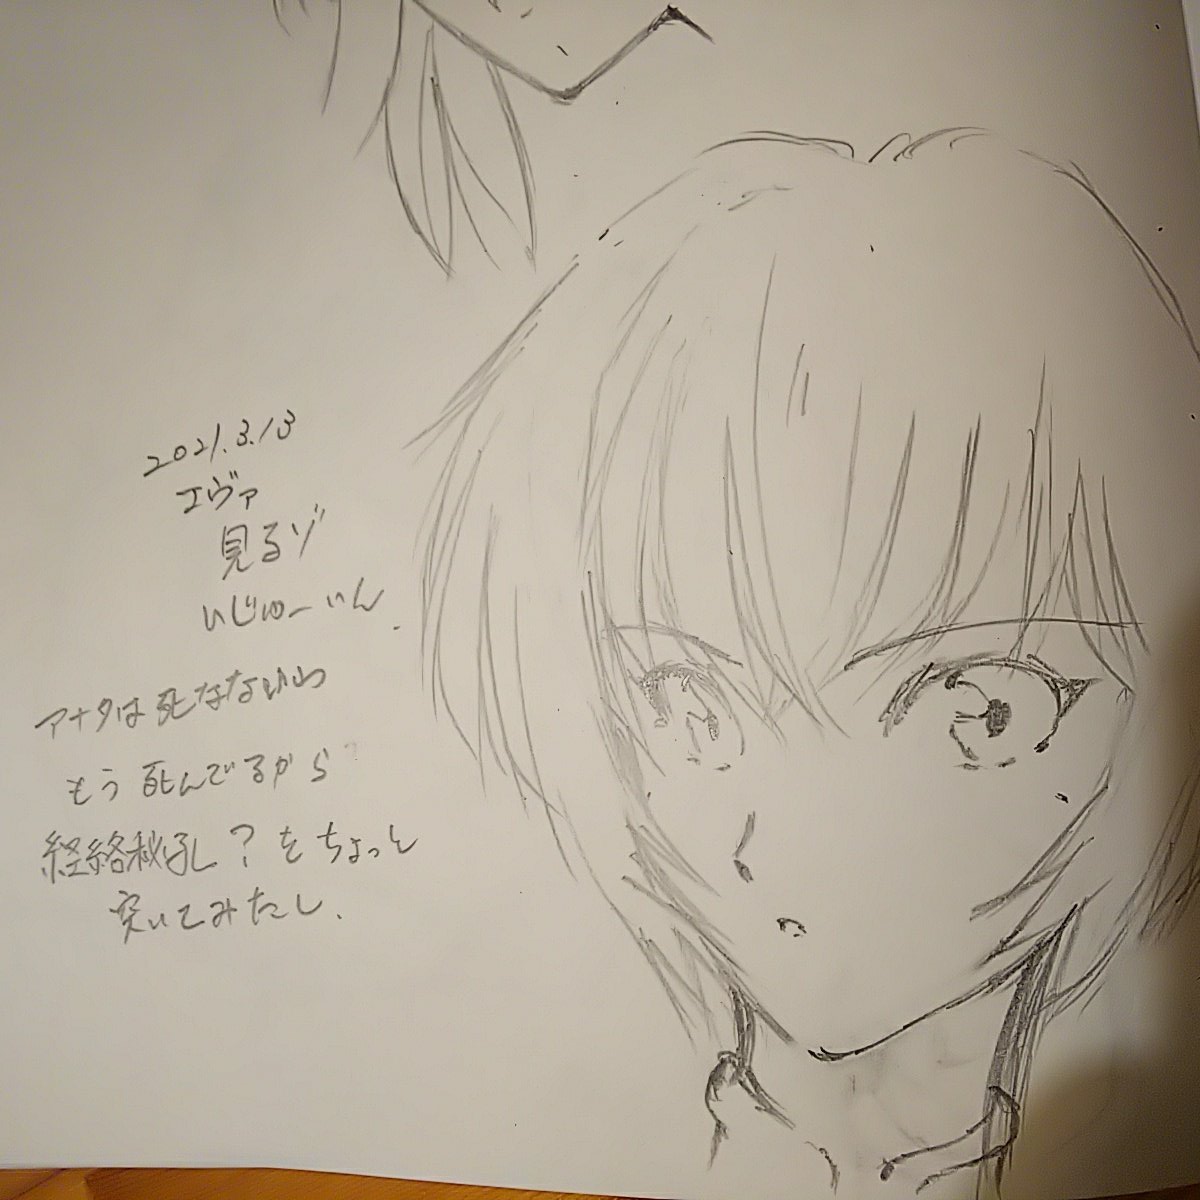 2021.3.13
エヴァ
見るゾ
いじゅーいん
アナタは死なないわ
もう死んでるから
経絡秘孔?をちょっと
突いてみたし.